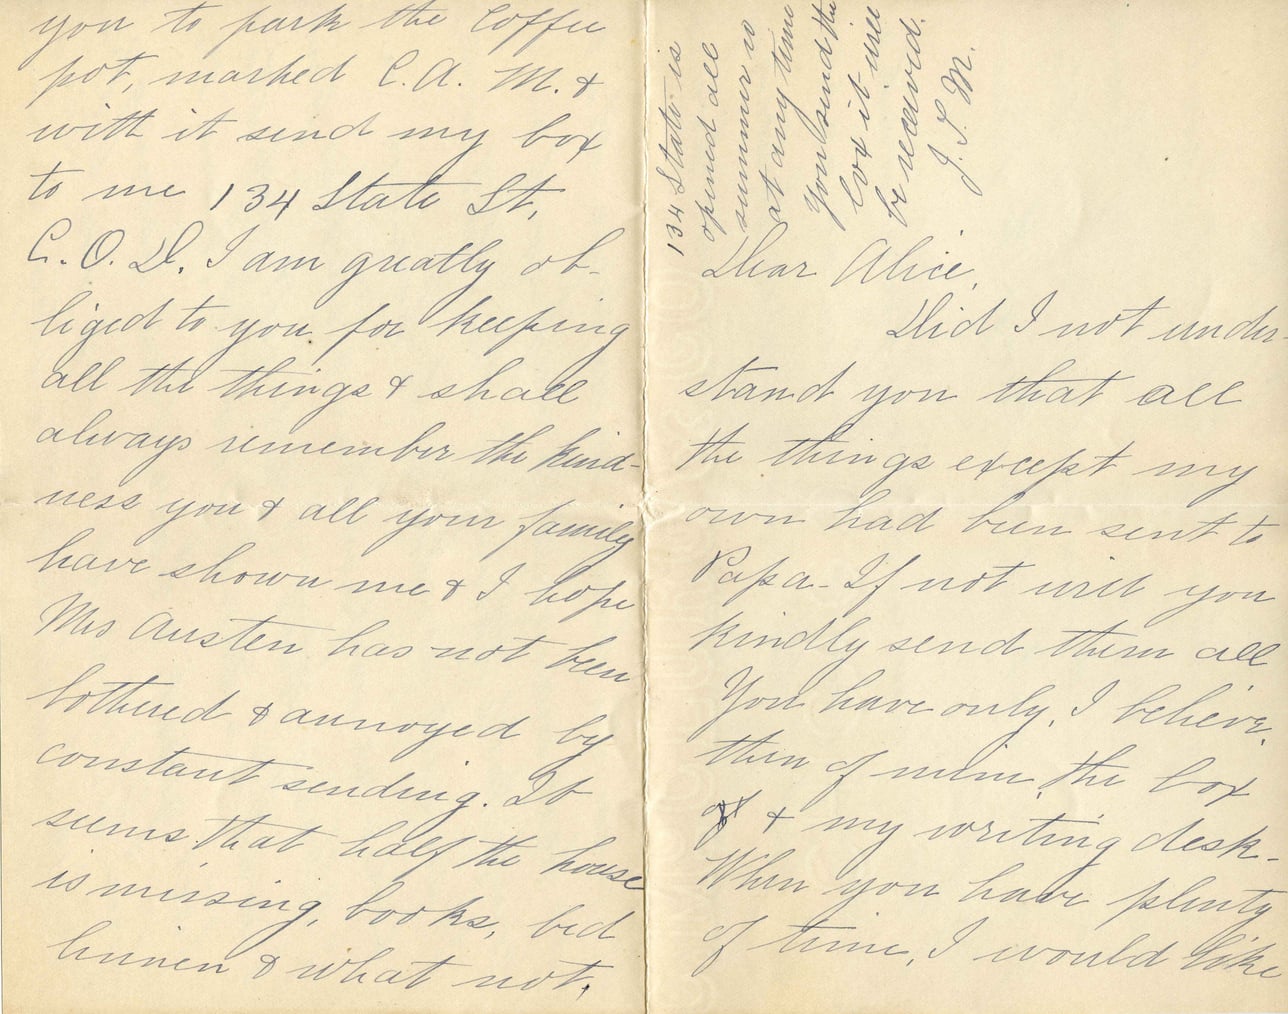 Dear Alice,
Did I not under-
stand you that all
the things except my
own had been sent to
Papa - If not will you
kindly send them all
You have only, I believe,
then of mine, the box
of & my writing desk -
When you have plenty
of time, I would like
you to park the Coffee
pot, marked C. A. M. &
with it send my box
to me 134 State St,
C. O. D. I am greatly ob-
liged to you for keeping
all the things & shall
always remember the kind-
ness you & all your family
have shown me & I hope
Mrs Austen has not been
bothered & annoyed by
constant sending. It
seems that half the house
is missing, books, bed
linnen & what not,
134 State is
opened all
summer so
at any time
you send the
box it will
be received.
J. T. M.